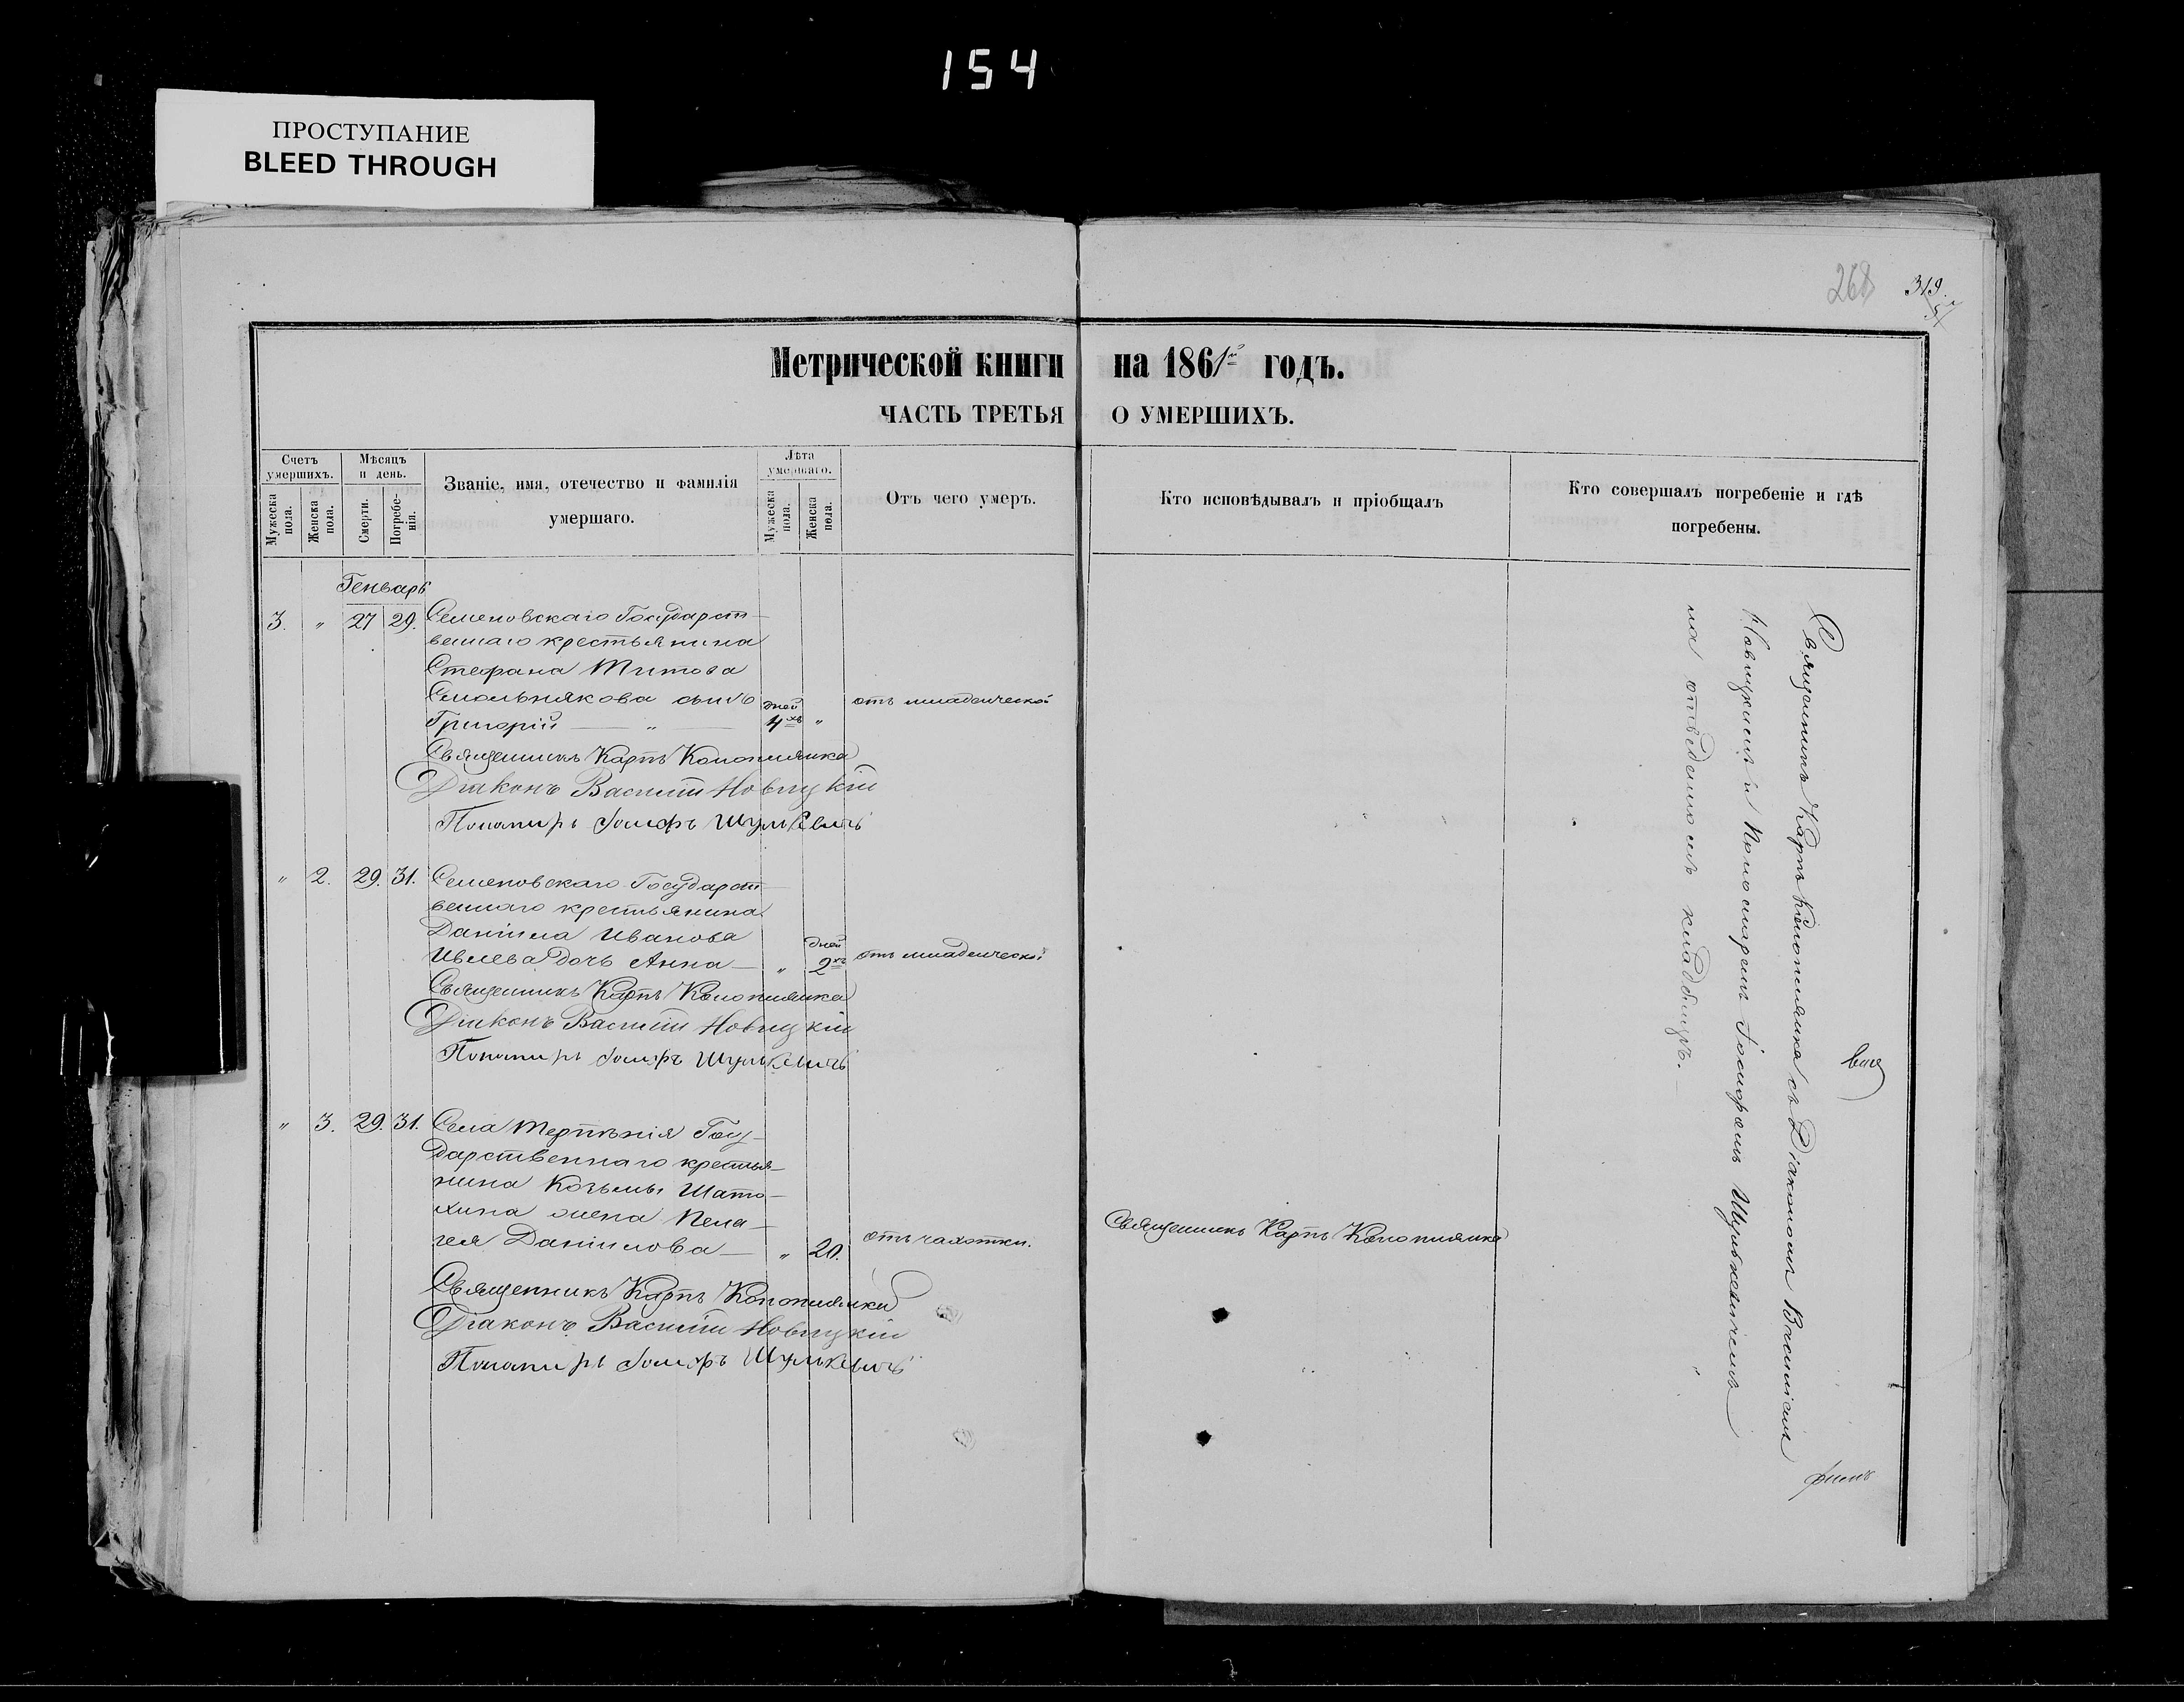 154
ПРОСТУПАНИЕ
BLEED THROUGH
268 319.
Метрической книги на 1861й годъ.
ЧАСТЬ ТРЕТЬЯ О УМЕРШИХЪ.
Счетъ умершихъ.
Мужеска пола.
Женска пола.
Мѣсяцъ и день.
Смерти.
Погребе-нія.
Званіе, имя, отечество и фамилія
умершаго.
Лѣта умершаго.
Мужеска пола.
Женска пола.
Отъ чего умеръ.
Кто исповѣдывалъ и пріобщалъ
Кто совершалъ погребеніе и гдѣ
погребены.
Генварь
3. „ 27 29. Семеновскаго Государст-
веннаго крестьянина
Стефана Титова
Смольнякова сынъ
Григорій — „ — дней 4хъ „ отъ младенческой
Священникъ Карпъ Конопшянка
Діаконъ Василій Новицкій
Пономарь Іосифъ Шулькевичъ
„ 2. 29. 31. Семеновскаго Государст-
веннаго крестьянина
Даніила Иванова
Ивлева дочь Анна — „ дней 2хъ отъ младенческой
Священникъ Карпъ Конопшянка
Діаконъ Василій Новицкій
Пономарь Іосифъ Шулькевичъ
„ 3. 29. 31. Села Терпѣнія Госу-
дарственнаго крестья-
нина Козьмы Шато-
хина жена Пела-
гея Данілова — „ 20. отъ чахотки.
Священникъ Карпъ Конопшянка
Священникъ Карпъ Конопшянка
Діаконъ Василій Новицкій
Пономарь Іосифъ Шулькевичъ
Священникъ Карпъ Конопшянка съ Діакономъ Василіемъ
Новицкимъ и Пономаремъ Іосифомъ Шулькевичемъ
на отведенномъ кладбищѣ.